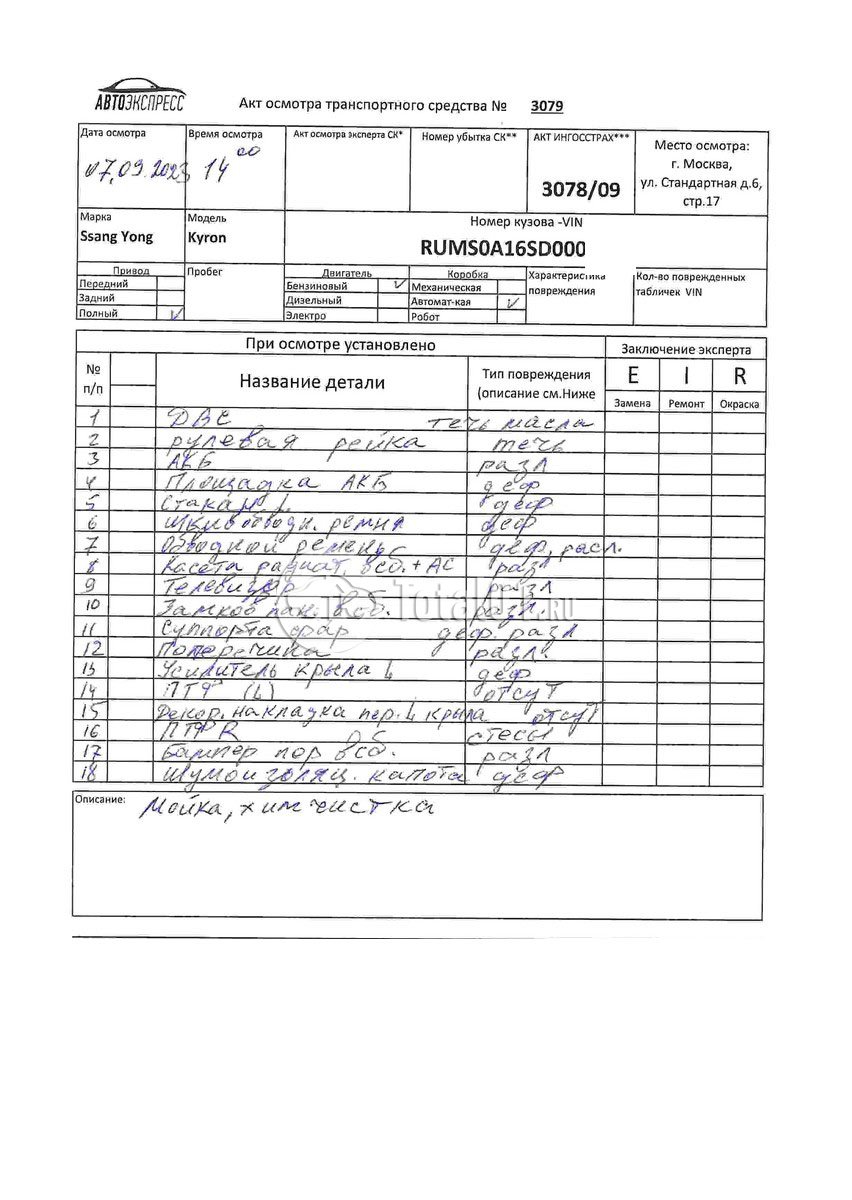 АВТОЭКСПРЕСС
Акт осмотра транспортного средства № 3079
Дата осмотра Время осмотра Акт осмотра эксперта СК* Номер убытка СК** АКТ ИНГОССТРАХ*** Место осмотра:
07.09.2023 14 00 3078/09 г. Москва,
ул. Стандартная д.6,
стр.17
Марка Модель Номер кузова -VIN
Ssang Yong Kyron RUMS0A16SD000
Привод Пробег Двигатель Коробка Характеристика повреждения Кол-во поврежденных табличек VIN
Передний Бензиновый ✓ Механическая
Задний Дизельный Автомат-кая ✓
Полный ✓ Электро Робот
При осмотре установлено Заключение эксперта
№ п/п Название детали Тип повреждения (описание см.Ниже E I R
Замена Ремонт Окраска
1 ДВС течь масла
2 рулевая рейка течь
3 АКБ разл
4 Площадка АКБ деф
5 Стакан L деф
6 шкив обводн. ремня деф
7 Обводной ремень деф, расл.
8 Касета радиат. в сб. + АС разл
9 Телевизор разл
10 Замков пан. в сб. разл.
11 Суппорта фар деф. разл
12 Поперечина разл.
13 Усилитель крыла L деф
14 ПТФ (L) отсут
15 Декор. накладка пер. L крыла отсут
16 ПТФ R стесы
17 Бампер пер в сб. разл
18 Шумоизоляц. капота деф
TotalKit.RU
Описание: Мойка, химчистка